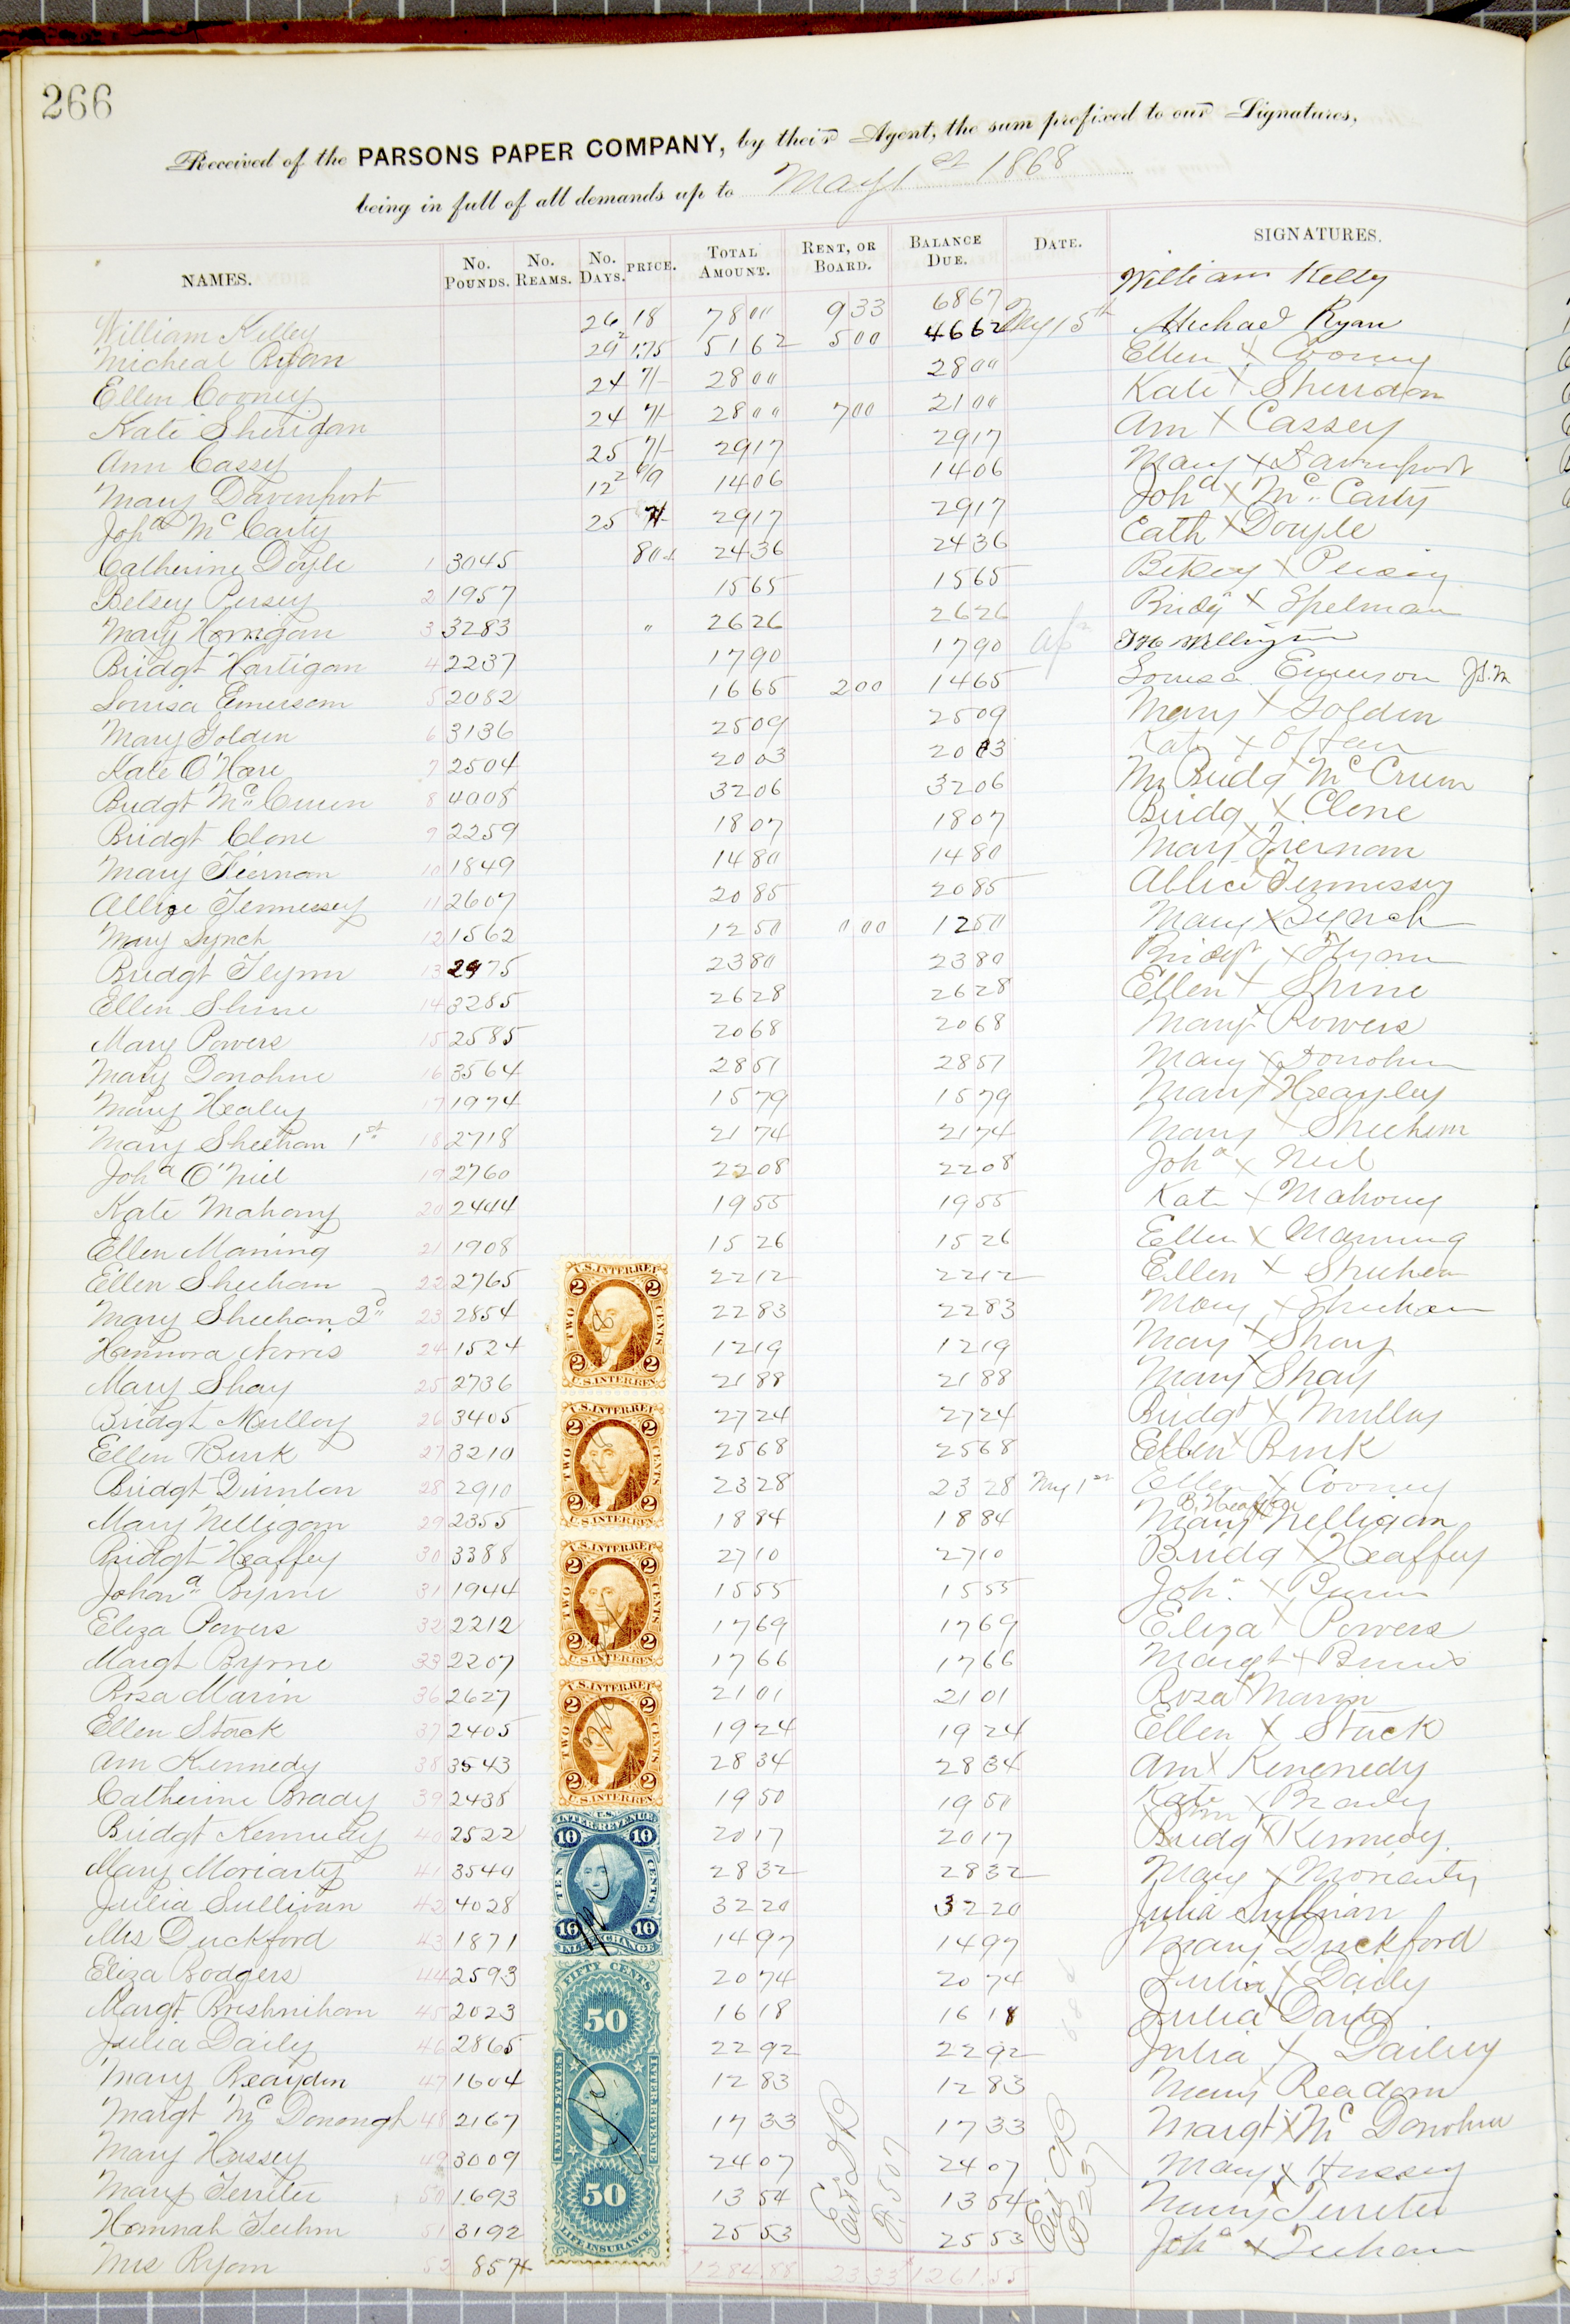 266
Received of the PARSONS PAPER COMPANY, by their Agent, the sum prefixed to our Signatures,
being in full of all demands up to May 1st 1868
NAMES. No. Pounds. No. Reams. No. Days. PRICE. Total Amount. Rent, or Board. Balance Due. Date. SIGNATURES.
William Kelley 26 18 78 00 9 33 68 67 William Kelly
Micheal Ryan 29 2 1.75 51 62 5 00 46 62 May 15th Michael Ryan
Ellen Cooney 24 7/- 28 00 28 00 Ellen X Cooney
Kate Sheridan 24 7/- 28 00 7 00 21 00 Kate X Sherridan
Ann Cassy 25 7/- 29 17 29 17 Ann X Cassey
Mary Davenport 12 2 6/9 14 06 14 06 Mary X Davenport
Joha McCarty 25 7/- 29 17 29 17 Joha X McCarty
Catherine Doyle 1 3045 80 24 36 24 36 Cath X Doyle
Betsey Persey 2 1957 15 65 15 65 Betsey X Persey
Mary Horrigan 3 3283 " 26 26 26 26 Bridg X Spelman
Bridgt Hartigan 4 2237 17 90 17 90
Louisa Emerson 5 2082 16 65 2 00 14 65 Louisa Emerson
Mary Golden 6 3136 25 09 25 09 Mary X Golden
Kate O'Hare 7 2504 20 03 20 03 Kate X
Bridgt McCruen 8 4008 32 06 32 06 Bridg McCruen
Bridgt Clone 9 2259 18 07 18 07 Bridg X Clone
Mary Tiernan 10 1849 14 80 14 80 Mary X Tiernan
Allice Fennessey 11 2607 20 85 20 85 Allice X Fennessey
Mary Lynch 12 1562 12 50 0 00 12 50 Mary X Lynch
Bridgt Flynn 13 2975 23 80 23 80 Bridgt X Flynn
Ellen Shine 14 3285 26 28 26 28 Ellen X Shine
Mary Powers 15 2585 20 68 20 68 Mary X Powers
Mary Donohue 16 3564 28 51 28 51 Mary X Donohue
Mary Healey 17 1974 15 79 15 79 Mary X Heayley
Mary Sheehan 1st 18 2718 21 74 21 74 Mary X Sheehan
Joha O'Niel 19 2760 22 08 22 08 Joha X Neil
Kate Mahony 20 2444 19 55 19 55 Kate X Mahoney
Ellen Maning 21 1908 15 26 15 26 Ellen X Manning
Ellen Sheehan 22 2765 22 12 22 12 Ellen X Sheehan
Mary Sheehan 2d 23 2854 22 83 22 83 Mary X Sheehan
Hannora Norris 24 1524 12 19 12 19 Mary X Shay
Mary Shay 25 2736 21 88 21 88 Mary X Shay
Bridgt Mulloy 26 3405 27 24 27 24 Bridgt X Mulloy
Ellen Burk 27 3210 25 68 25 68 Ellen X Burk
Bridgt Quinlan 28 2910 23 28 23 28 May 1st Ellen X Cooney
Mary Nelligan 29 2355 18 84 18 84 B. Heaffey Mary X Nelligan
Bridgt Heaffey 30 3388 27 10 27 10 Bridg X Heaffey
Johana Byrne 31 1944 15 55 15 55 Joha X
Eliza Powers 32 2212 17 69 17 69 Eliza X Powers
Margt Byrne 33 2207 17 66 17 66 Margt X
Rosa Marin 36 2627 21 01 21 01 Rosa X Marin
Ellen Stack 37 2405 19 24 19 24 Ellen X Stack
Ann Kennedy 38 3543 28 34 28 34 Ann X Kenenedy
Catherine Brady 39 2438 19 50 19 50 Kate X Brady
Bridgt Kennedy 40 2522 20 17 20 17 Ann Bridgt X Kennedy
Mary Moriarty 41 3540 28 32 28 32 Mary X Moriarty
Julia Sullivan 42 4028 32 20 32 20 Julia Sullivan
Mrs Duckford 43 1871 14 97 14 97 Mary X Duckford
Eliza Rodgers 44 2593 20 74 20 74 Julia X Daily
Margt Breshnihan 45 2023 16 18 16 18 Julia X Daily
Julia Daily 46 2865 22 92 22 92 Julia X Dailey
Mary Reayden 47 1604 12 83 12 83 Mary X Readon
Margt McDonough 48 2167 17 33 17 33 Margt X McDonohue
Mary Hussey 49 3009 24 07 24 07 Mary X Hussey
Mary Ferriter 50 1693 13 54 13 54 Mary X Ferriter
Hannah Teehan 51 3192 25 53 25 53 Joha X Teehan
Mrs Ryan 52 857 1284.88 23 33 1261.55
U.S. INTER. REV.
TWO CENTS
2
U.S. INTER. REV.
TWO CENTS
2
U.S. INTER. REV.
TWO CENTS
2
U.S. INTER. REV.
TWO CENTS
2
U.S. INTER. REVENUE
10 TEN CENTS. 10
INL. EXCHANGE
FIFTY CENTS
50
UNITED STATES INTER REVENUE
50
LIFE INSURANCE